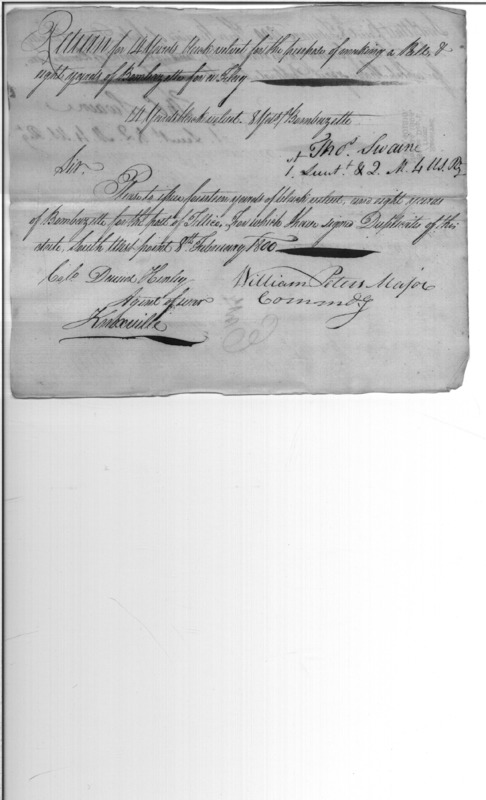 Return for 14 Yards black velvet for the purpose of making a Pall &
eight yards of Bombazette for a Flag
14 Yards black velvet. 8 Yds. Bombazette
Thos. Swaine
1. Lieut. & Q. M. 4 U.S. Rg
Sir.
Please to issue fourteen yards of black velvet, and eight yards
of Bombazette for the post of Tellico, for which I have signed Duplicates of this
date, South West point 8th February 1800
Colo. David Henley
Agent of war
Knoxville
William Peters Major
Command.g